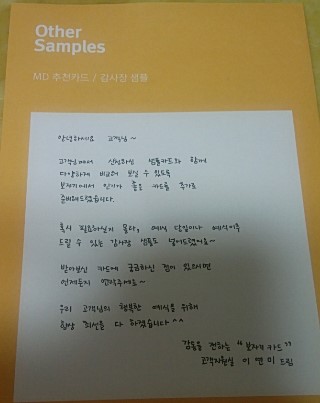 Other
Samples
MD 추천카드 / 감사장 샘플
안녕하세요 고객님 ~
고객님께서 신청하신 샘플카드와 함께
다양하게 비교해 보실 수 있도록
보자기에서 인기가 좋은 카드를 추가로
준비해드렸습니다.
혹시 필요하실지 몰라, 예식 당일이나 예식이후
드릴 수 있는 감사장 샘플도 넣어드렸어요~
받아보신 카드에 궁금하신 점이 있으시면
언제든지 연락주세요 ~
우리 고객님의 행복한 예식을 위해
항상 최선을 다 하겠습니다 ^^
감동을 전하는 " 보자기 카드 "
고객지원실 이 연 미 드림